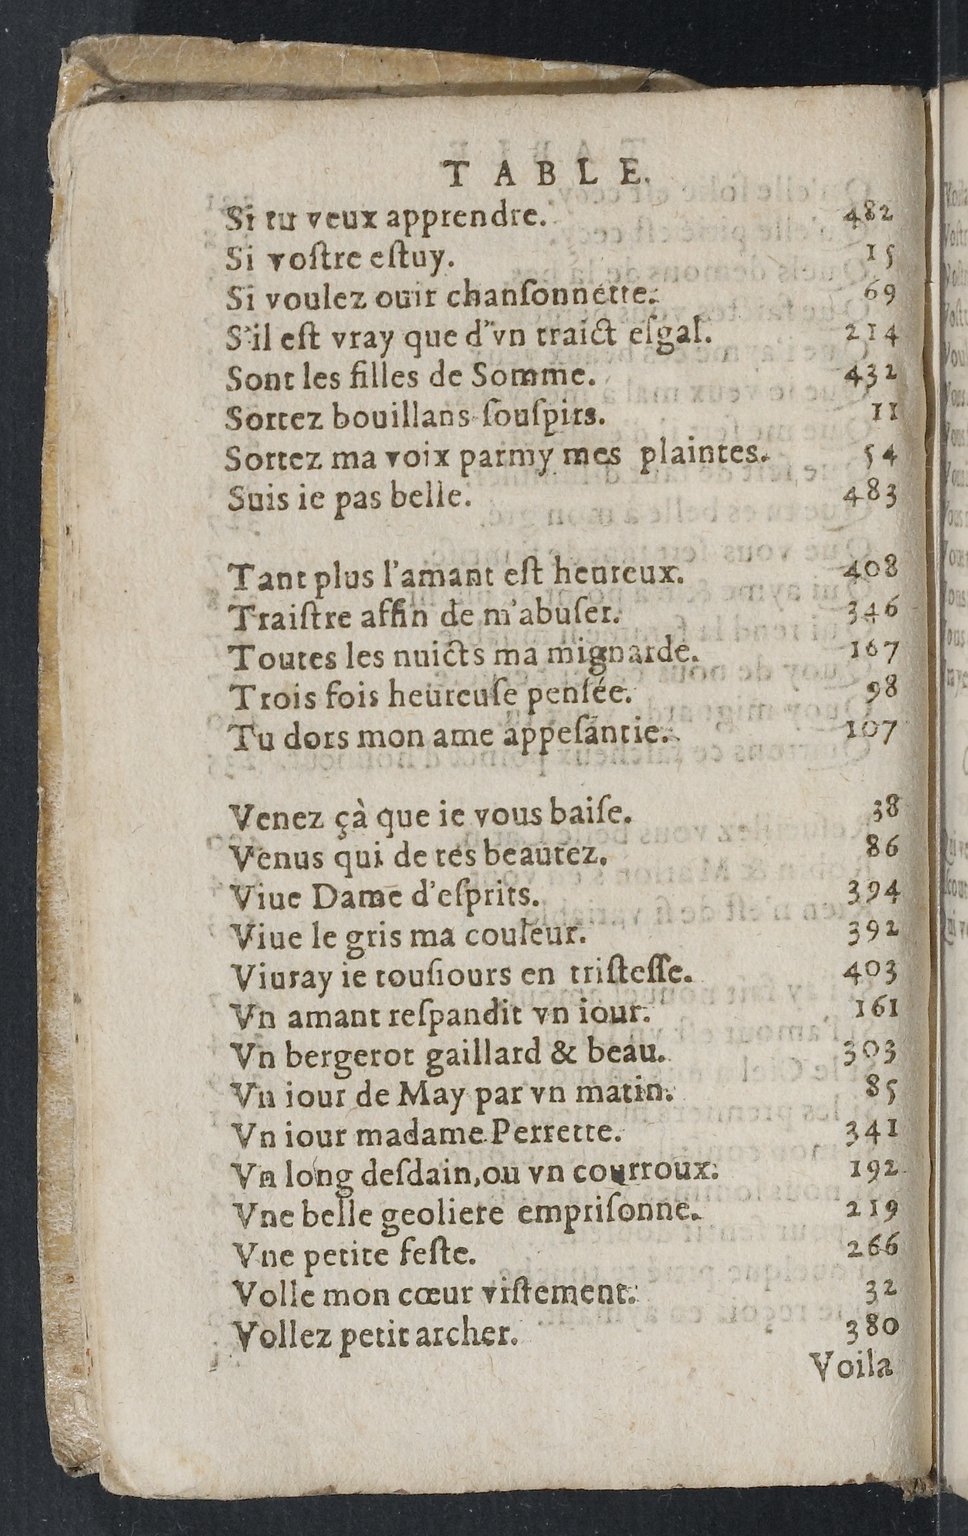 TABLE.
Si tu veux apprendre. 482
Si voſtre eſtuy. 15
Si voulez ouir chanſonnette. 69
S'il eſt vray que d'vn traict eſgal. 214
Sont les filles de Somme. 432
Sortez bouillans ſouſpirs. 11
Sortez ma voix parmy mes plaintes. 54
Suis ie pas belle. 483
Tant plus l'amant eſt heureux. 408
Traiſtre affin de m'abuſer. 346
Toutes les nuicts ma mignarde. 167
Trois fois heureuſe penſée. 98
Tu dors mon ame appeſantie. 107
Venez çà que ie vous baiſe. 38
Venus qui de tes beautez. 86
Viue Dame d'eſprits. 394
Viue le gris ma couleur. 392
Viuray ie touſiours en triſteſſe. 403
Vn amant reſpandit vn iour. 161
Vn bergerot gaillard & beau. 303
Vn iour de May par vn matin. 85
Vn iour madame Perrette. 341
Vn long deſdain, ou vn courroux. 192
Vne belle geoliere empriſonne. 219
Vne petite feſte. 266
Volle mon cœur viſtement. 32
Vollez petit archer. 380
Voila